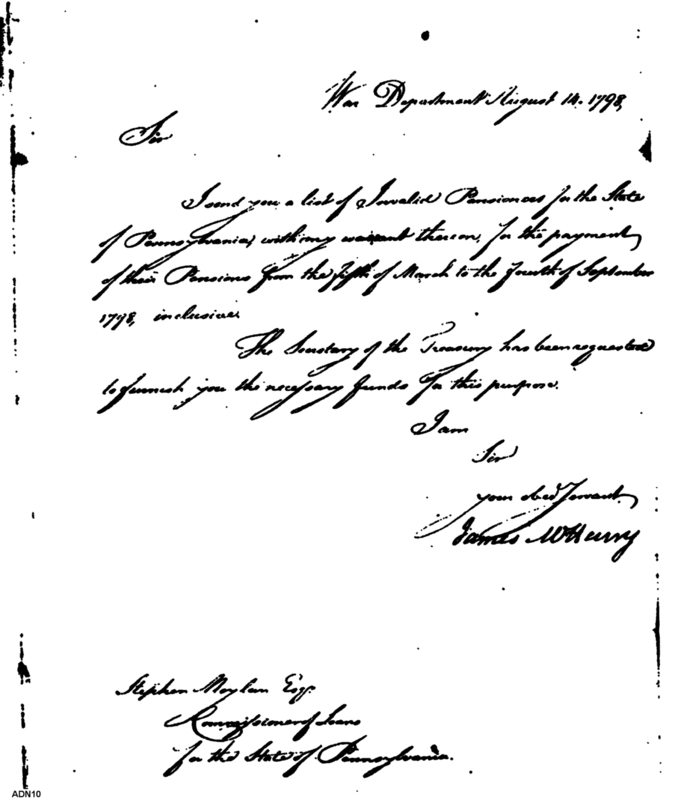 War Department August 14. 1798,
Sir
I send you a list of Invalid Pensioners for the State
of Pennsylvania, with my warrant thereon, for the payment
of their Pensions from the fifth of March to the fourth of September
1798, inclusive.
The Secretary of the Treasury has been requested
to furnish you the necessary funds for this purpose.
I am
Sir
your obed Servant
James McHenry
Stephen Moylan Esqr.
Commissioner of Loans
for the State of Pennsylvania.
ADN10